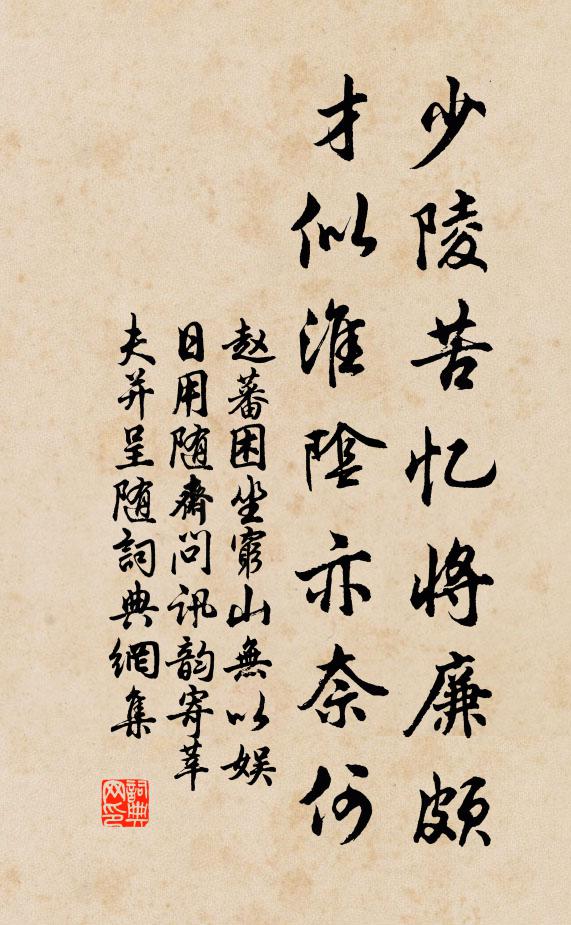 少陵苦忆将廉颇
才似淮陰亦奈何
赵蕃困坐窮山無以娱
日用随齋问讯韵寄莘
夫并呈随詞典網集
詞典网印